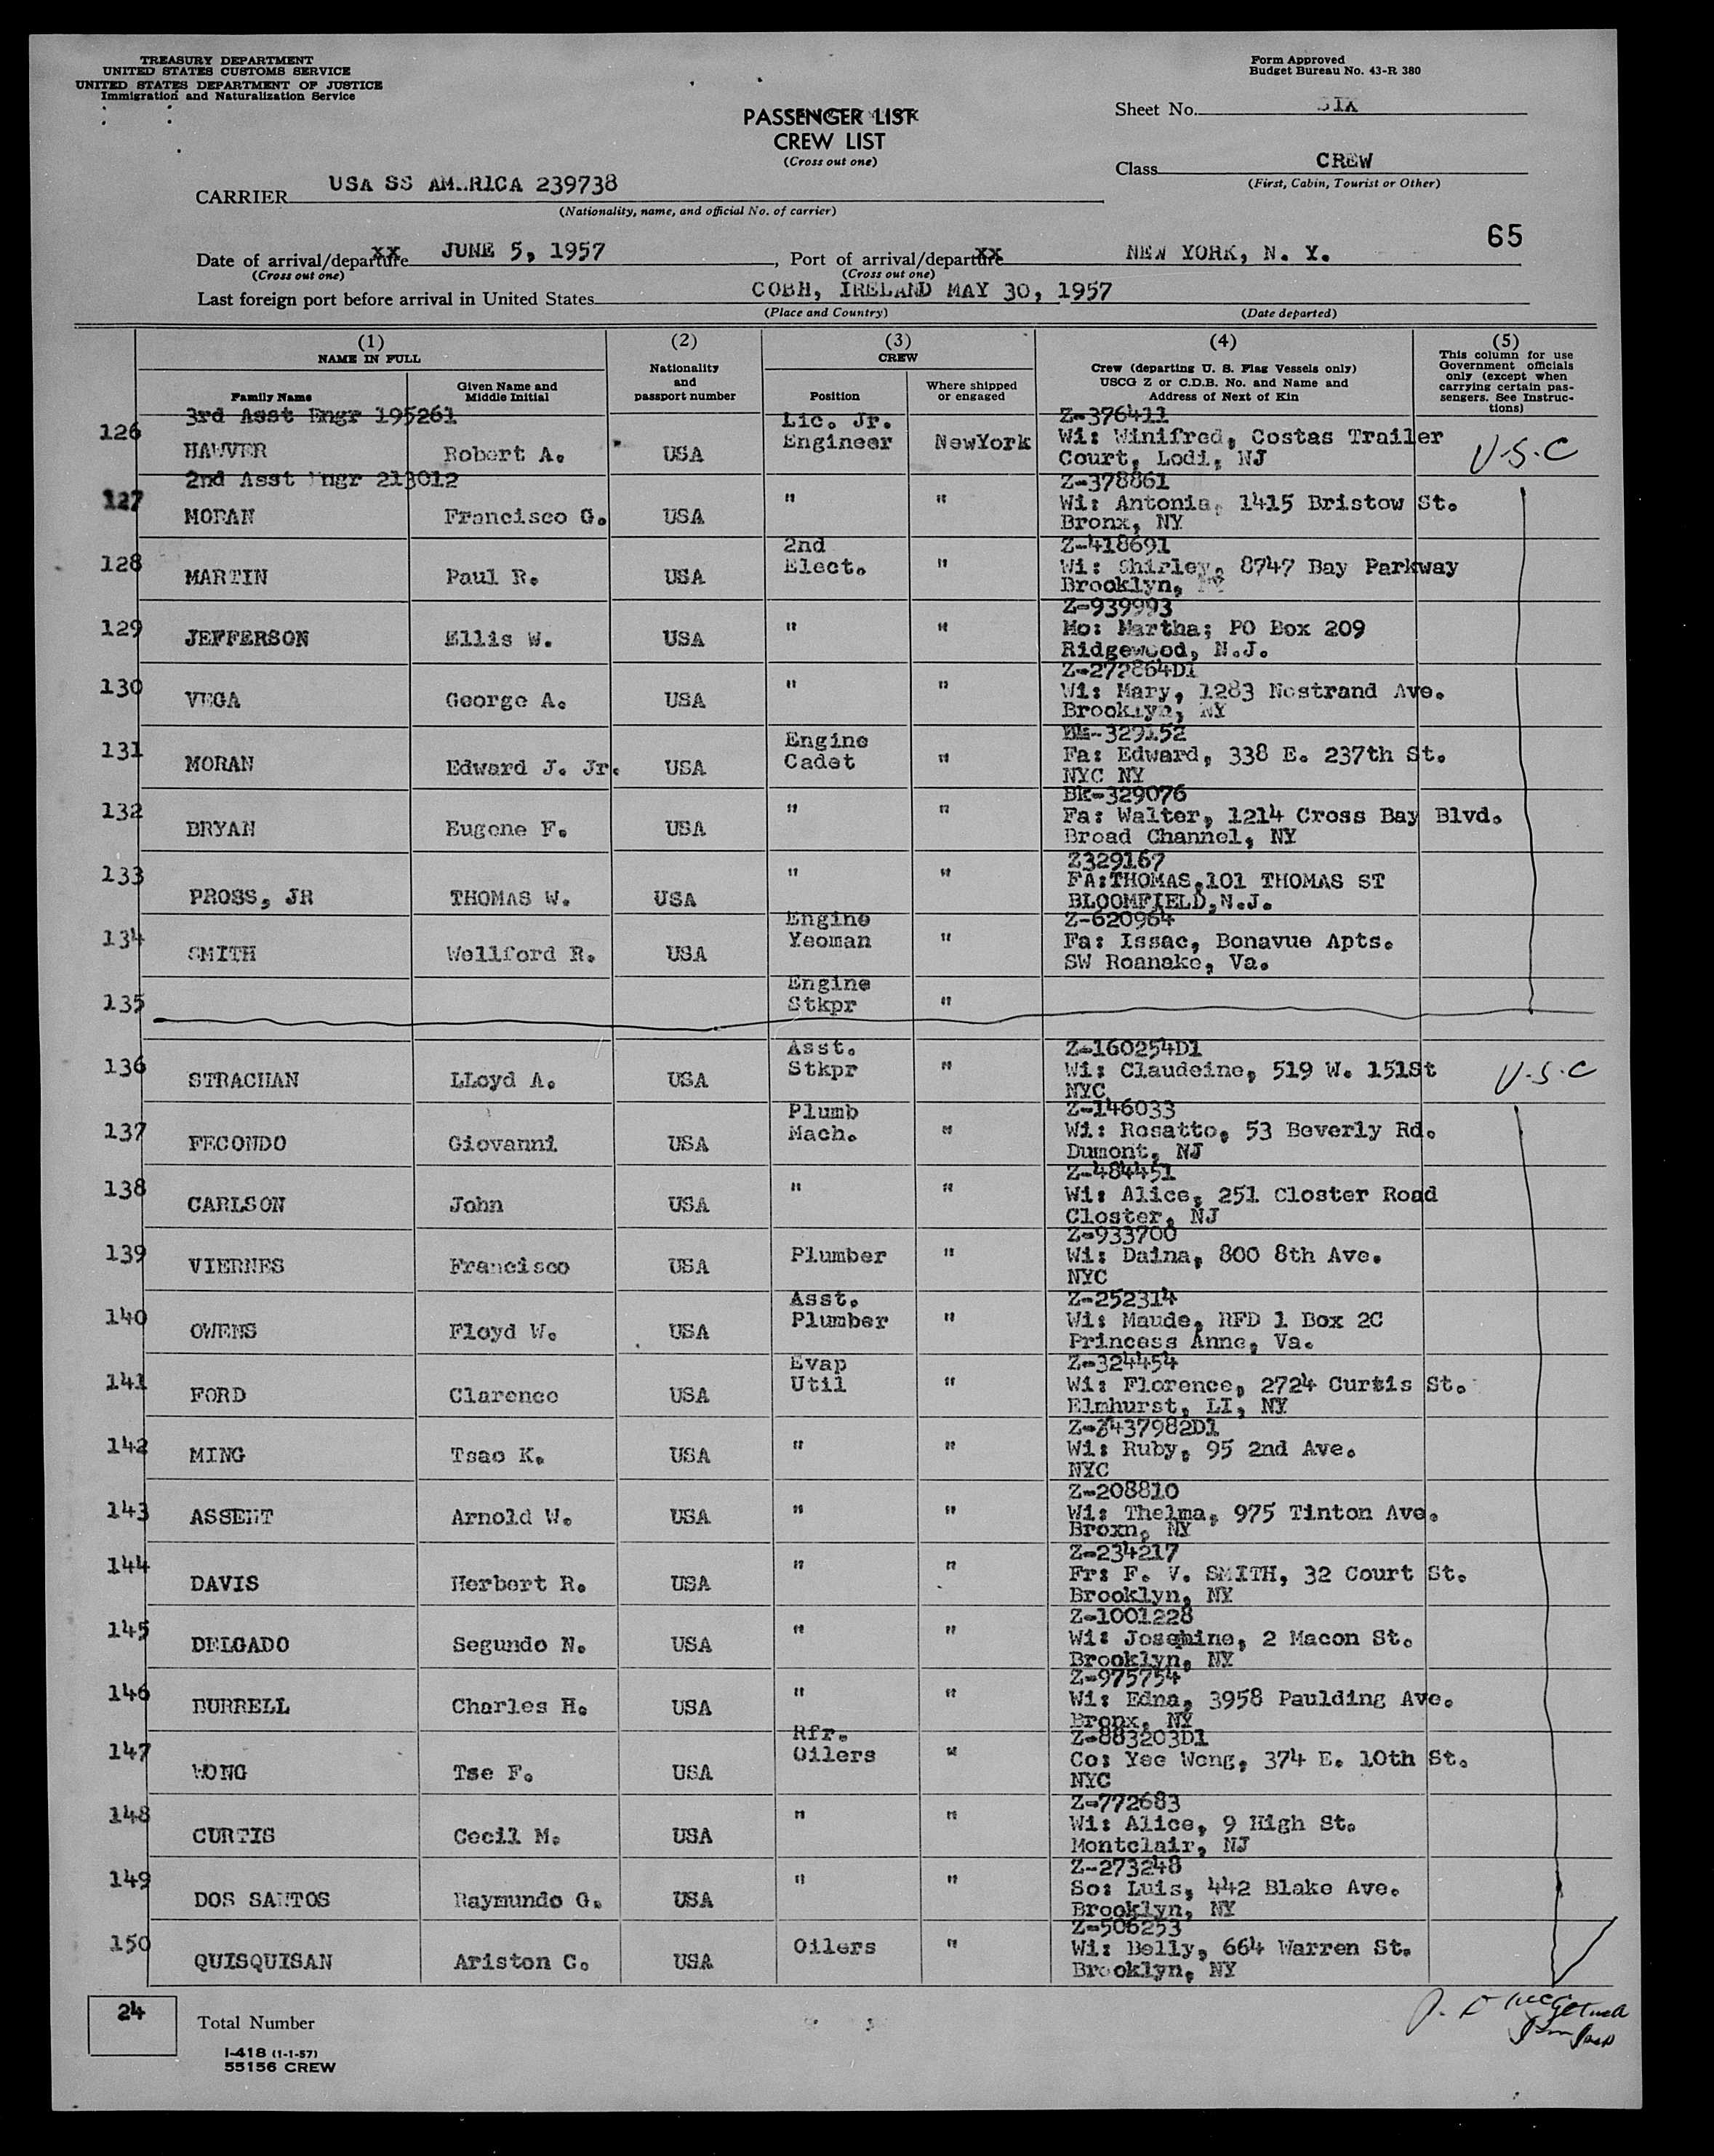 TREASURY DEPARTMENT
UNITED STATES CUSTOMS SERVICE
UNITED STATES DEPARTMENT OF JUSTICE
Immigration and Naturalization Service
Form Approved
Budget Bureau No. 43-R 380
PASSENGER LIST
CREW LIST
(Cross out one)
Sheet No. SIX
Class CREW
(First, Cabin, Tourist or Other)
CARRIER USA SS AMERICA 239738
(Nationality, name, and official No. of carrier)
65
Date of arrival/departure xx JUNE 5, 1957, Port of arrival/departure xx NEW YORK, N. Y.
(Cross out one) (Cross out one)
Last foreign port before arrival in United States COBH, IRELAND MAY 30, 1957
(Place and Country) (Date departed)
(1) NAME IN FULL
Family Name
Given Name and Middle Initial
(2) Nationality and passport number
(3) CREW
Position
Where shipped or engaged
(4) Crew (departing U. S. Flag Vessels only) USCG Z or C.D.B. No. and Name and Address of Next of Kin
(5) This column for use Government officials only (except when carrying certain passengers. See Instructions)
3rd Asst Engr 195261 Lic. Jr. Z-376411
126 HAWVER Robert A. USA Engineer NewYork Wi: Winifred, Costas Trailer
Court, Lodi, NJ U.S.C
2nd Asst Engr 213012 Z-378861
127 MORAN Francisco G. USA " " Wi: Antonia, 1415 Bristow St.
Bronx, NY
2nd Z-418691
128 MARTIN Paul R. USA Elect. " Wi: Shirley, 8747 Bay Parkway
Brooklyn, NY
Z-939993
129 JEFFERSON Ellis W. USA " " Mo: Martha; PO Box 209
Ridgewood, N.J.
Z-272864D1
130 VEGA George A. USA " " Wi: Mary, 1283 Nostrand Ave.
Brooklyn, NY
Engine -329152
131 MORAN Edward J. Jr. USA Cadet " Fa: Edward, 338 E. 237th St.
NYC NY
BK-329076
132 BRYAN Eugene F. USA " " Fa: Walter, 1214 Cross Bay Blvd.
Broad Channel, NY
Z329167
133 PROSS, JR THOMAS W. USA " " FA:THOMAS,101 THOMAS ST
BLOOMFIELD,N.J.
Engine Z-620964
134 SMITH Wellford R. USA Yeoman " Fa: Issac, Bonavue Apts.
SW Roanoke, Va.
Engine
135 Stkpr "
Asst. Z-160254D1
136 STRACHAN LLoyd A. USA Stkpr " Wi: Claudeine, 519 W. 151St
NYC U.S.C
Plumb Z-146033
137 FECONDO Giovanni USA Mach. " Wi: Rosatto, 53 Beverly Rd.
Dumont, NJ
Z-484451
138 CARLSON John USA " " Wi: Alice, 251 Closter Road
Closter, NJ
Z-933700
139 VIERNES Francisco USA Plumber " Wi: Daina, 800 8th Ave.
NYC
Asst. Z-252314
140 OWENS Floyd W. USA Plumber " Wi: Maude, RFD 1 Box 2C
Princess Anne, Va.
Evap Z-324454
141 FORD Clarence USA Util " Wi: Florence, 2724 Curtis St.
Elmhurst, LI, NY
Z-3437982D1
142 MING Tsao K. USA " " Wi: Ruby, 95 2nd Ave.
NYC
Z-208810
143 ASSENT Arnold W. USA " " Wi: Thelma, 975 Tinton Ave.
Broxn, NY
Z-234217
144 DAVIS Herbert R. USA " " Fr: F. V. SMITH, 32 Court St.
Brooklyn, NY
Z-1001228
145 DELGADO Segundo N. USA " " Wi: Josephine, 2 Macon St.
Brooklyn, NY
Z-975754
146 BURRELL Charles H. USA " " Wi: Edna, 3958 Paulding Ave.
Bronx, NY
Rfr. Z-883203D1
147 WONG Tse F. USA Oilers " Co: Yee Wong, 374 E. 10th St.
NYC
Z-772683
148 CURTIS Cecil M. USA " " Wi: Alice, 9 High St.
Montclair, NJ
Z-273248
149 DOS SANTOS Raymundo G. USA " " So: Luis, 442 Blake Ave.
Brooklyn, NY
Z-506253
150 QUISQUISAN Ariston C. USA Oilers " Wi: Belly, 664 Warren St.
Brooklyn, NY
24 Total Number
I-418 (1-1-57)
55156 CREW